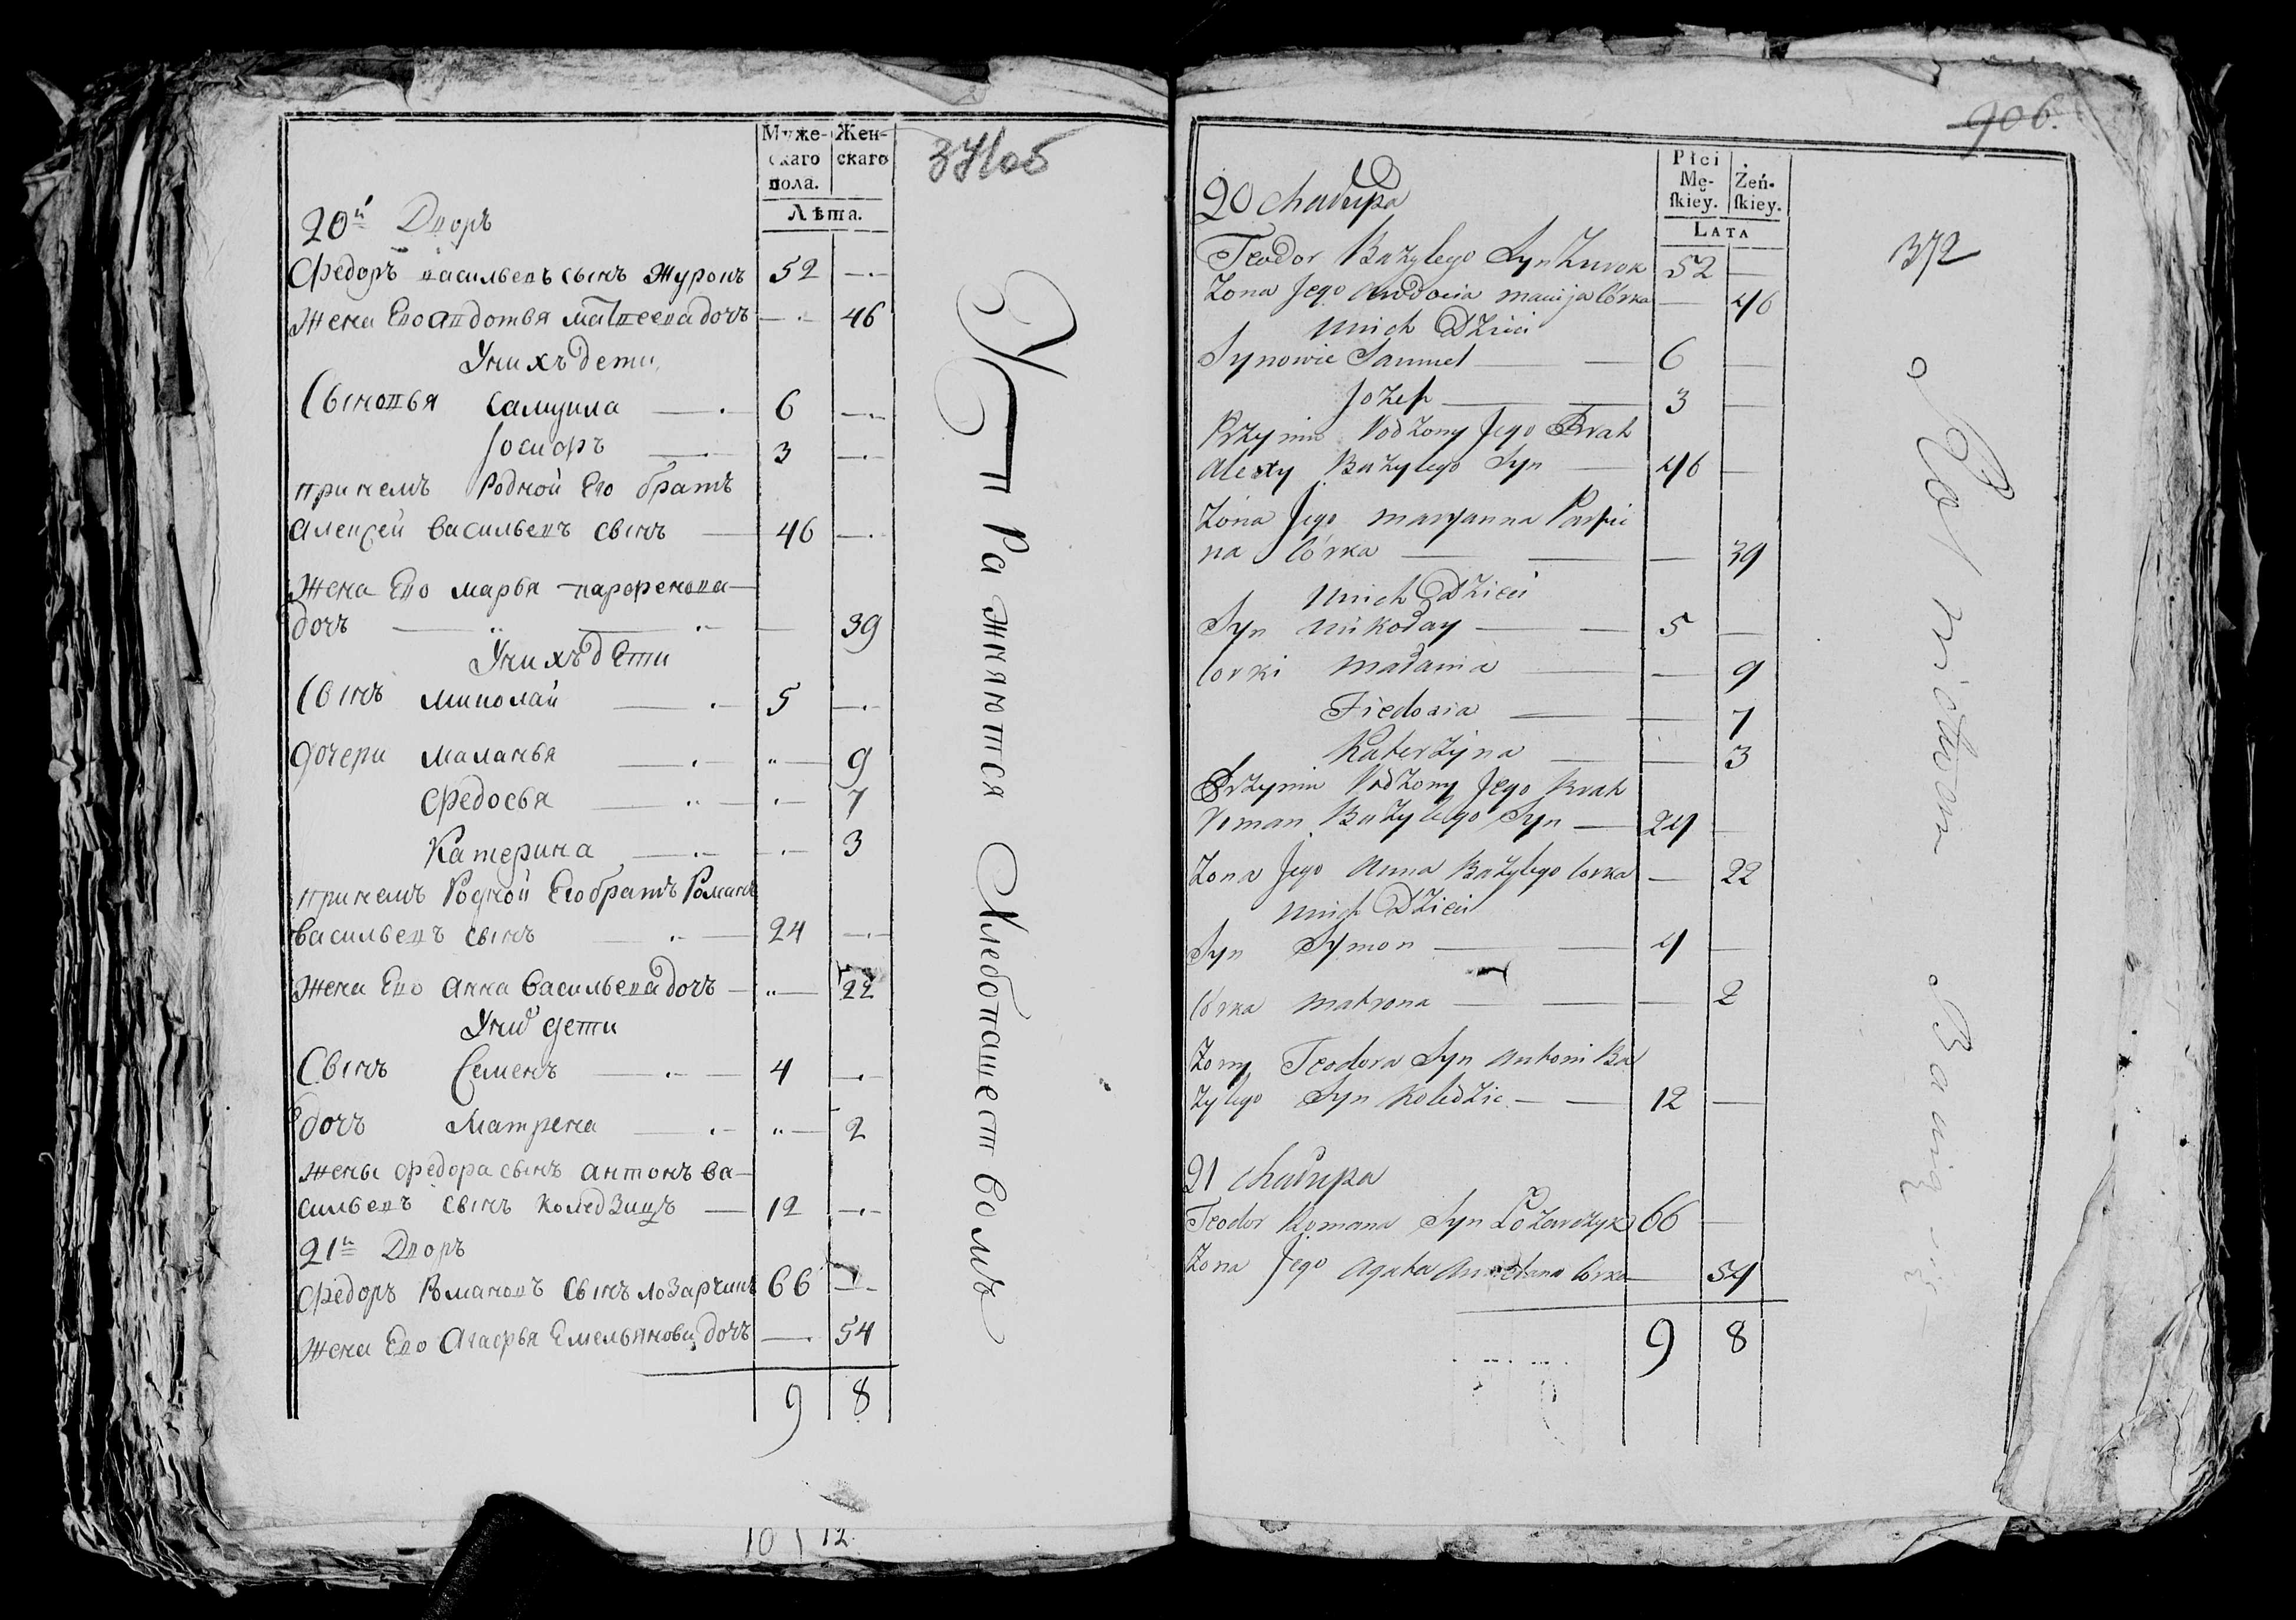 Муже- Жен-
скаго скаго
пола.
Лѣта.
371об
20й Дворъ
Федоръ васильевъ сынъ Журовъ 52 —
Жена Его авдотья матвеева дочъ — 46
У них дети
Сыновья самуила — 6 —
Іосифъ — 3 —
при немъ Родной Его братъ
алексей васильевъ сынъ — 46 —
Жена Ево марья парфенова
дочъ — — — 39
У нихъ дети
Сынъ миколай — 5 —
дочери маланья — — 9
Федосья — — 7
Катерина — — 3
при немъ Родной Его братъ Романъ
васильевъ сынъ — 24 —
Жена Ево анна васильева дочъ — — 22
У них дети
Сынъ Семенъ — 4 —
дочъ матрена — — 2
жены федора сынъ антонъ ва-
сильевъ сынъ — 12 —
21й Дворъ
Федоръ Романовъ сынъ лозарчикъ 66 —
Жена Ево Агафья Емельянова дочъ — 54
9 8
Упражняются Хлебопашествомъ
10 12
906.
Płci
Mę- Żeń-
ſkiey. ſkiey.
LATA
372
20 Chałupa
Teodor Bazylego Syn Żurow 52 —
Żona Jego Awdocia Córka — 46
u nich Dzieci
Synowie Samuel — — 6 —
Jozef — — 3 —
Przy nim Rodzony Jego Brat
Alexy Bazylego Syn — 46 —
Żona Jego Maryanna Parfie
na Córka — — — 39
u nich Dzieci
Syn Mikołay — — 5 —
Corki Małania — — 9
Fiedosia — — 7
Katerzyna — — 3
Przy nim Rodzony Jego Brat
Roman Bazylego Syn — 24 —
Żona Jego Anna Bazylego Corka — 22
u nich Dzieci
Syn Symon — — 4 —
Córka Matrona — — — 2
Żony Teodora Syn Antoni Ba
zylego Syn — — 12 —
21 Chałupa
Teodor Romana Syn Łozarczyk 66 —
Żona Jego Agata Corka — 54
9 8